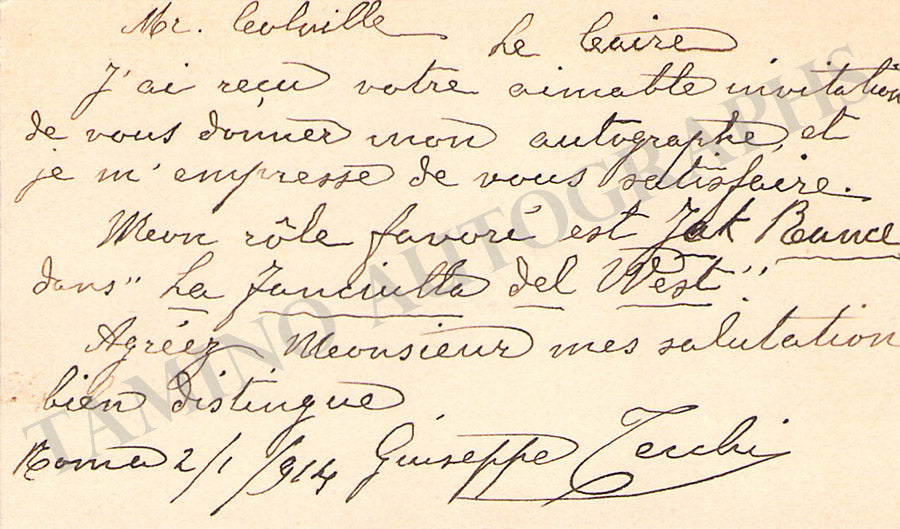 Mr. Colville
Le Caire
J'ai reçu votre aimable invitation
de vous donner mon autographe, et
je m'empresse de vous satisfaire.
Mon rôle favoré est Jak Rance
dans "La Fanciulla del West"
Agréez Monsieur mes salutation
bien distingue
Roma 2/1/914 Giuseppe Tecchi
TAMINO AUTOGRAPHS